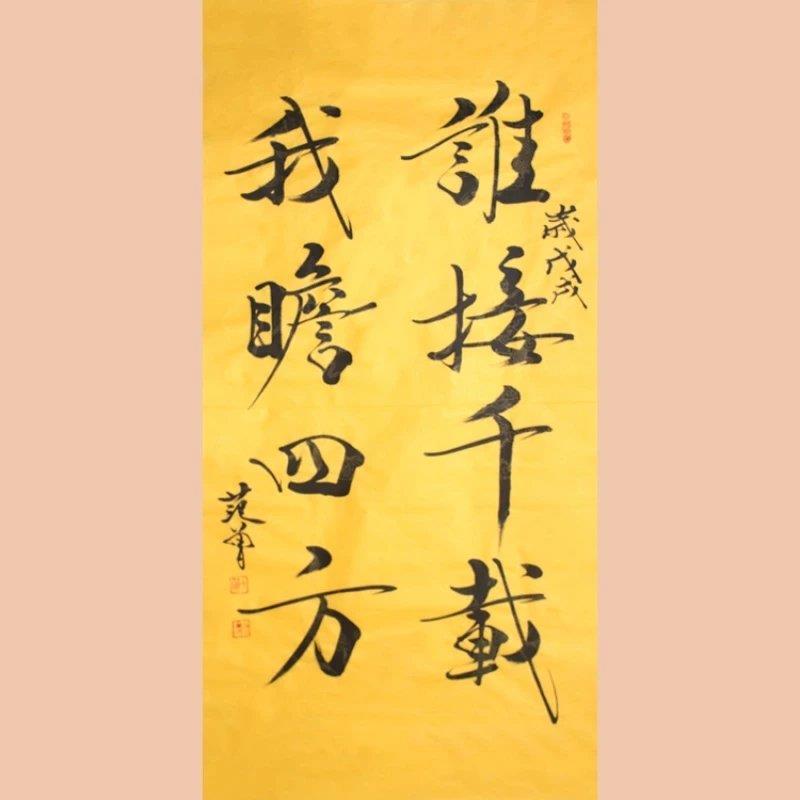 歲戊戌
誰接千載
我瞻四方
范曾